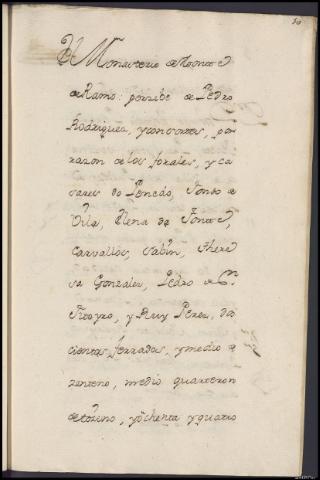 50
El Monasterio de Monte
de Ramo: percibe de Pedro
Rodriguez, y consortes, por
razon de los forales, y ca
sares do Penedo, Fondo a
Vila, Elena da Fonte,
Carvallos, Sabin, There
sa Gonzalez, Pedro de
y Ruy Perez, do
cientos ferrados, y medio a
zenteno, medio quarteron
de tozino, y ochenta y quatro